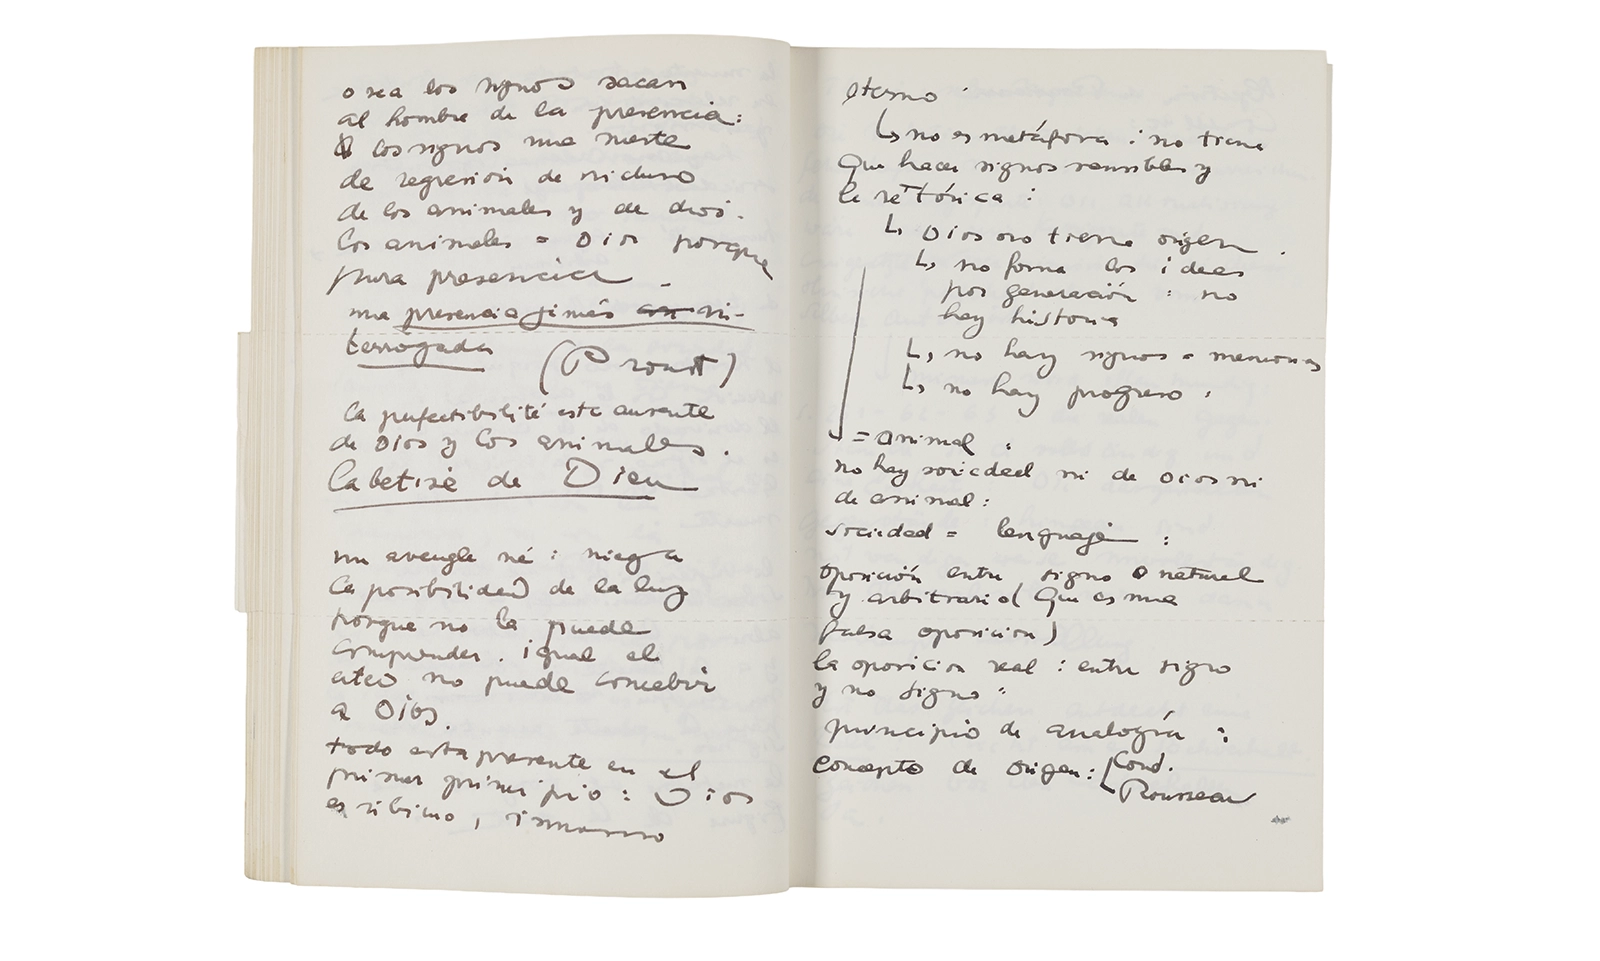 o sea los signos sacan
al hombre de la presencia:
los signos una suerte
de regresión de
de los animales y de dios.
los animales = Dios porque
pura presencia
una presencia jamás in-
terrogada
(Proust)
la perfectibilité esta ausente
de Dios y los animales.
la betise de Dieu
un aveugle né : niega
la posibilidad de la luz
porque no la puede
comprender. igual el
ateo no puede concebir
a Dios.
todo esta presente en el
primer principio : Dios
es , inmenso
eterno :
↳ no es metáfora : no tiene
que hacer signos sensibles y
la retórica :
↳ Dios no tiene origen
↳ no forma las ideas
por generación : no
hay historia
↳ no hay signos = memorias
↳ no hay progreso :
= animal :
no hay sociedad ni de Dios ni
de animal :
sociedad = lenguaje :
oposición entre signo natural
y arbitrario (que es una
falsa oposicion)
la oposicion real : entre signo
y no signo =
principio de analogía :
concepto de origen : Cond.
Rousseau